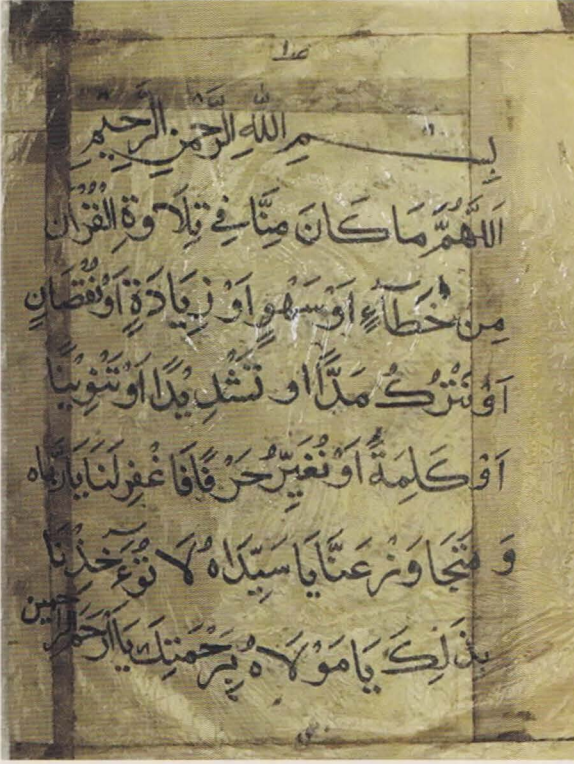 بِسْمِ اللهِ الرَّحْمٰنِ الرَّحِيْمِ
اَللّٰهُمَّ مَا كَانَ مِنَّا فِي تِلَاوَةِ الْقُرْاٰنِ
مِنْ خَطَآءٍ اَوْ سَهْوٍ اَوْ زِيَادَةٍ اَوْ نُقْصَانٍ
اَوْ نَتْرُكُ مَدًّا اَو تَشْدِيْدًا اَوْ تَنْوِيْنًا
اَوْ كَلِمَةً اَوْ نُغَيِّرُ حَرْفًا فَاغْفِرْ لَنَا يَا رَبَّاه
وَ تَجَاوَزْ عَنَّا يَا سَيِّدَاهُ لَا تُؤَخِذْنَا
بِذَلِكَ يَا مَوْلَاهُ بِرَحْمَتِكَ يَا اَرْحَمَ الرَّاحِمِين